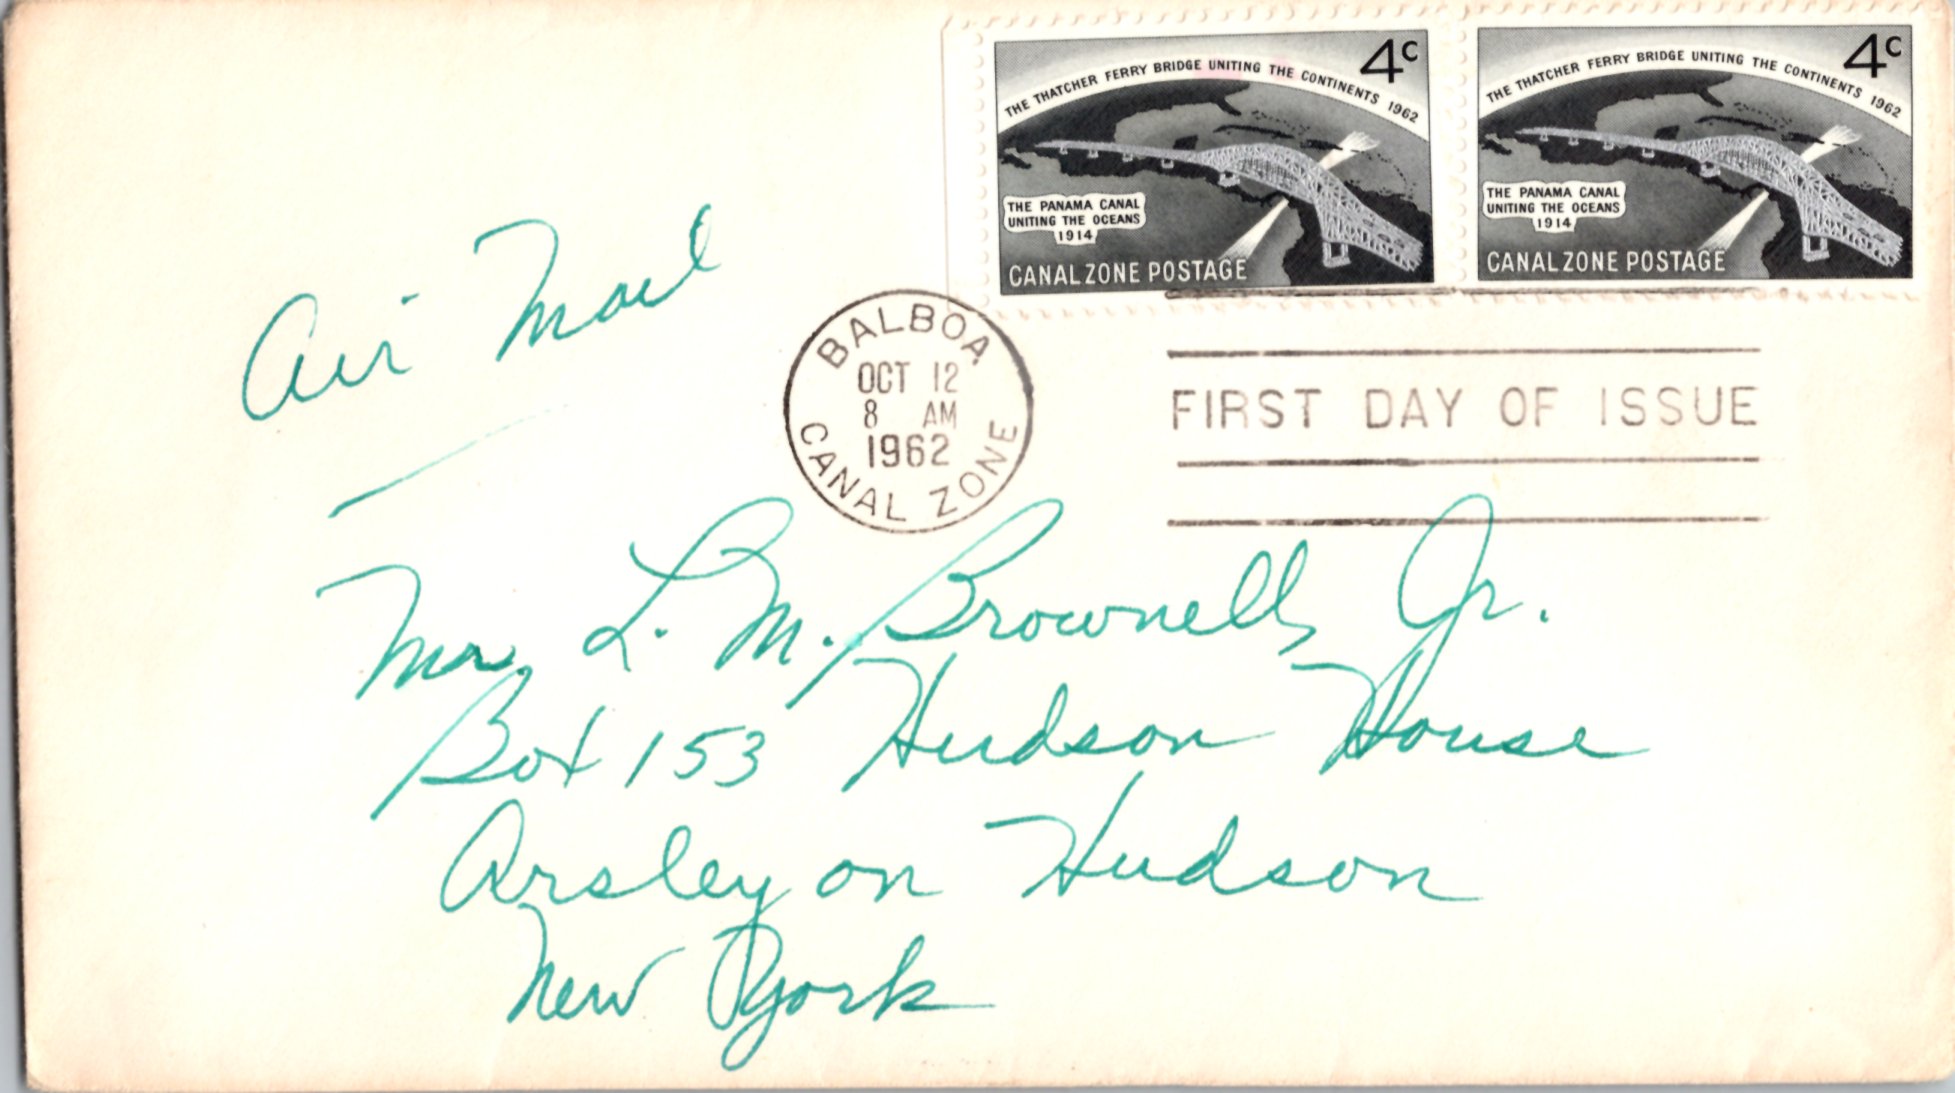 THE THATCHER FERRY BRIDGE UNITING THE CONTINENTS 1962
4c
THE PANAMA CANAL
UNITING THE OCEANS
1914
CANAL ZONE POSTAGE
THE THATCHER FERRY BRIDGE UNITING THE CONTINENTS 1962
4c
THE PANAMA CANAL
UNITING THE OCEANS
1914
CANAL ZONE POSTAGE
Air Mail
BALBOA
OCT 12
8 AM
1962
CANAL ZONE
FIRST DAY OF ISSUE
Mr. L. M. Brownell, Jr.
Box 153 Hudson House
Arsley on Hudson
New York